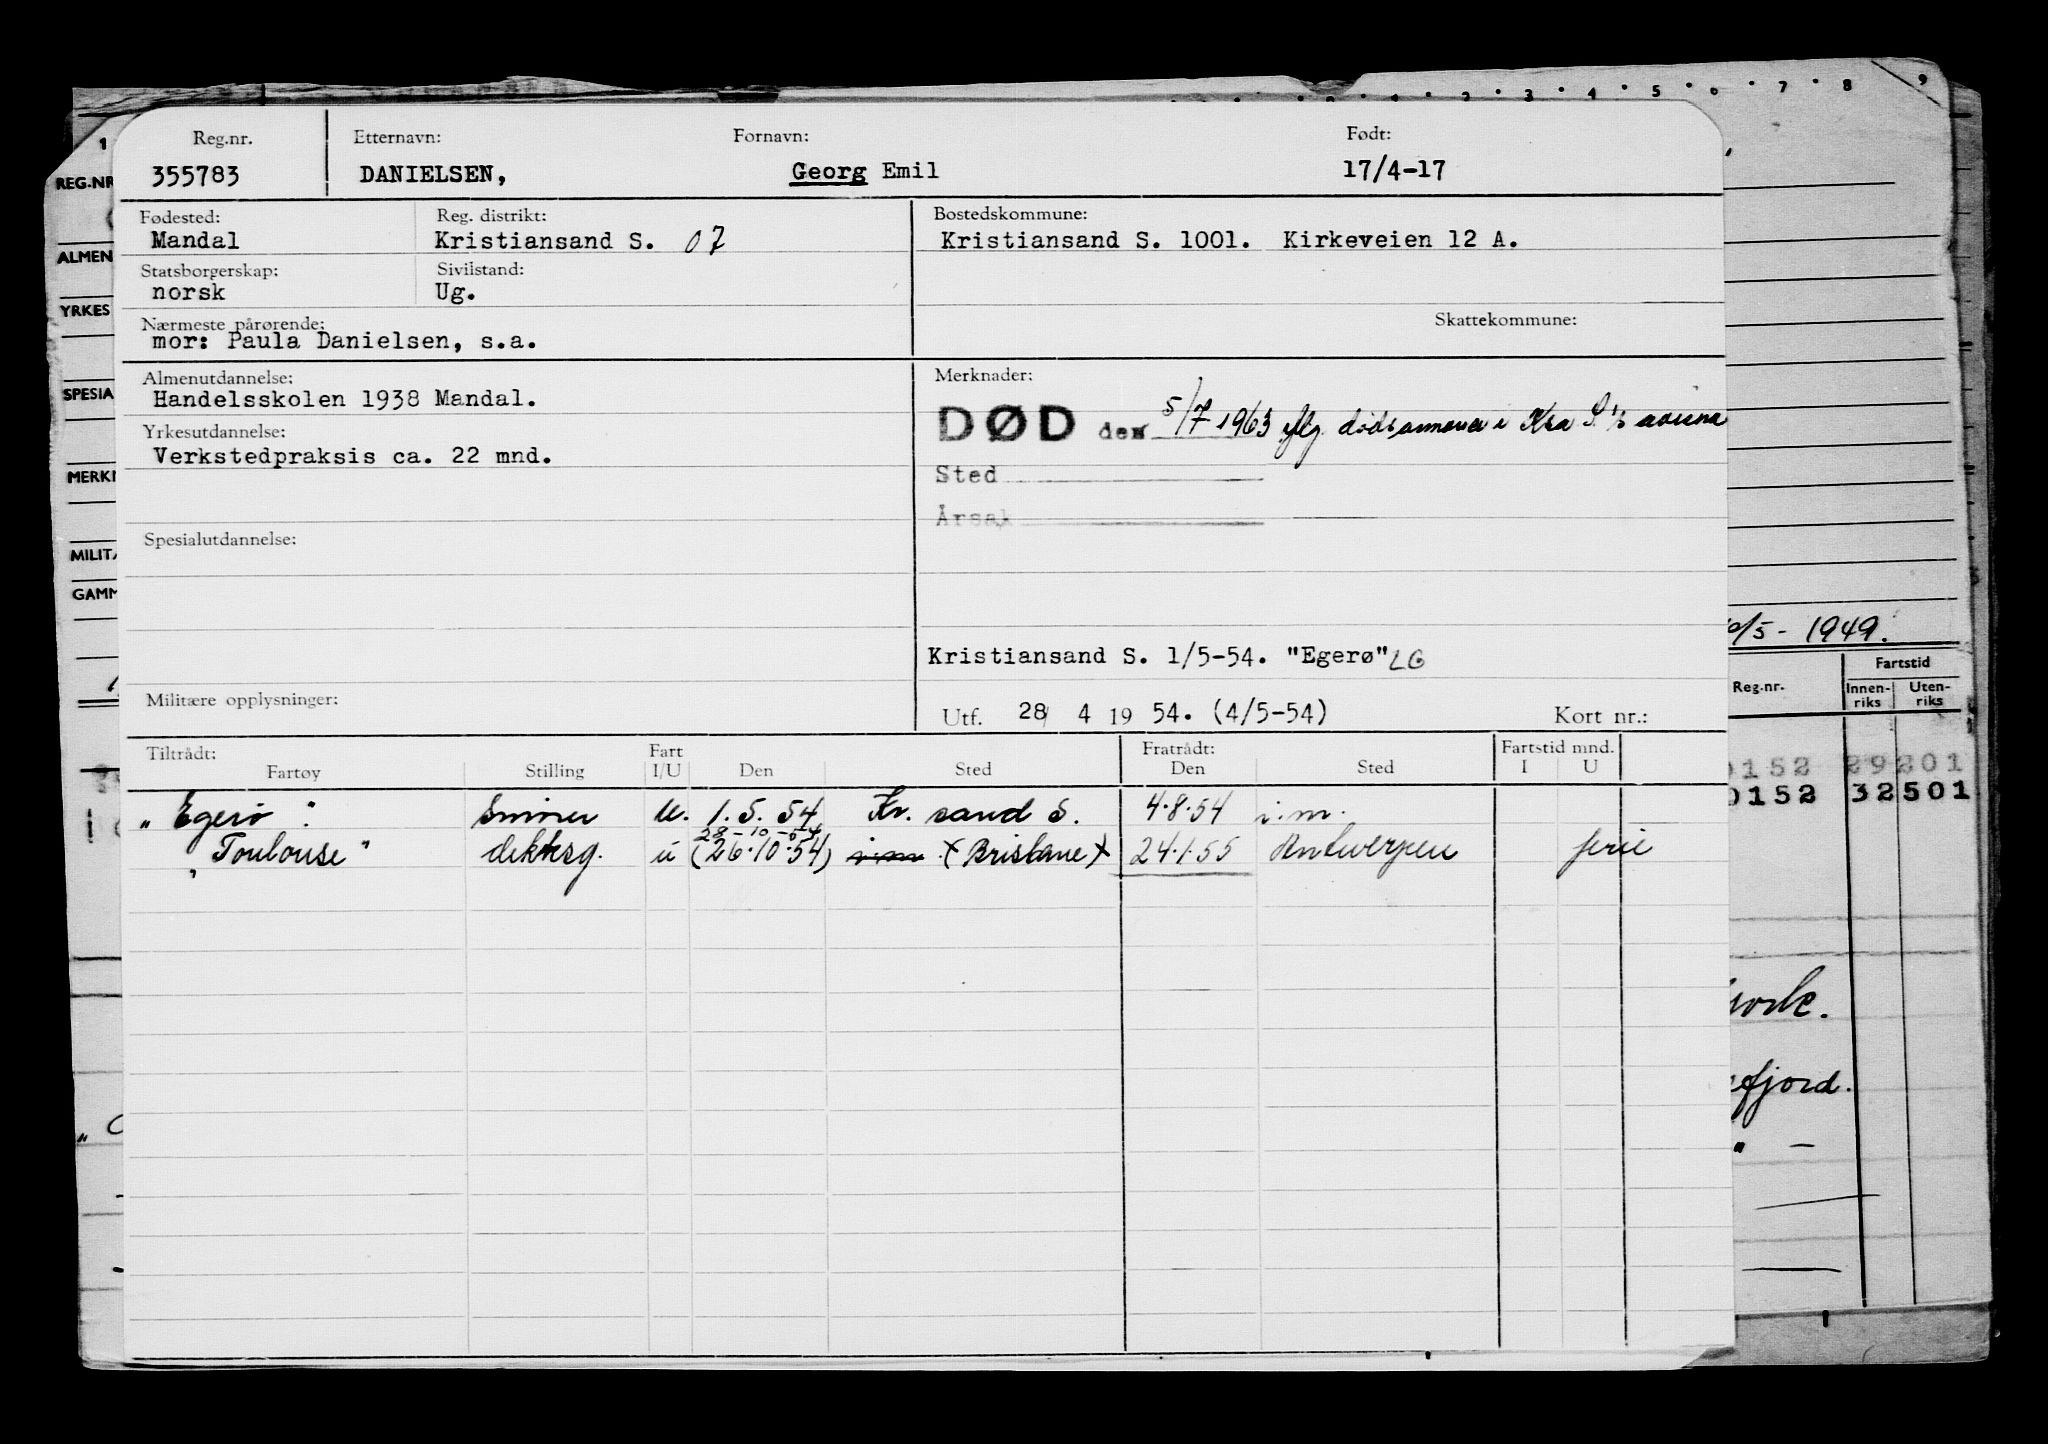 Reg.nr. Etternavn: Fornavn: Født:
355783 DANIELSEN, Georg Emil 17/4-17
Fødested: Reg. distrikt: Bostedskommune:
Mandal Kristiansand S. 07 Kristiansand S. 1001. Kirkeveien 12 A.
Statsborgerskap: Sivilstand:
norsk Ug.
Nærmeste pårørende: Skattekommune:
mor: Paula Danielsen, s.a.
Almenutdannelse: Merknader:
Handelsskolen 1938 Mandal.
DØD den 5/7 1963 iflg. dødsannonse i Kra S.
Yrkesutdannelse:
Verkstedpraksis ca. 22 mnd.
Sted
Årsak
Spesialutdannelse:
Kristiansand S. 1/5-54. "Egerø" LG
Militære opplysninger:
Utf. 28/ 4 19 54. (4/5-54) Kort nr.:
Tiltrådt: Fart Fratrådt: Fartstid mnd.
Fartøy Stilling I/U Den Sted Den Sted I U
"Egerø" Smører U. 1.5.54 Kr. sand S. 4.8.54 i.m.
28-10-54
"Toulouse" dekksg. u (26.10.54) i.m. (Brisbane) 24.1.55 Antwerpen ferie
1
REG.NR
ALMEN
YRKES
SPESIA
MERK
MILIT
GAMM
2 3 4 5 6 7 8 9
/5 - 1949.
Reg.nr. Fartstid
Innen-riks Uten-riks
0152 29201
0152 32501
york.
efjord.
" —